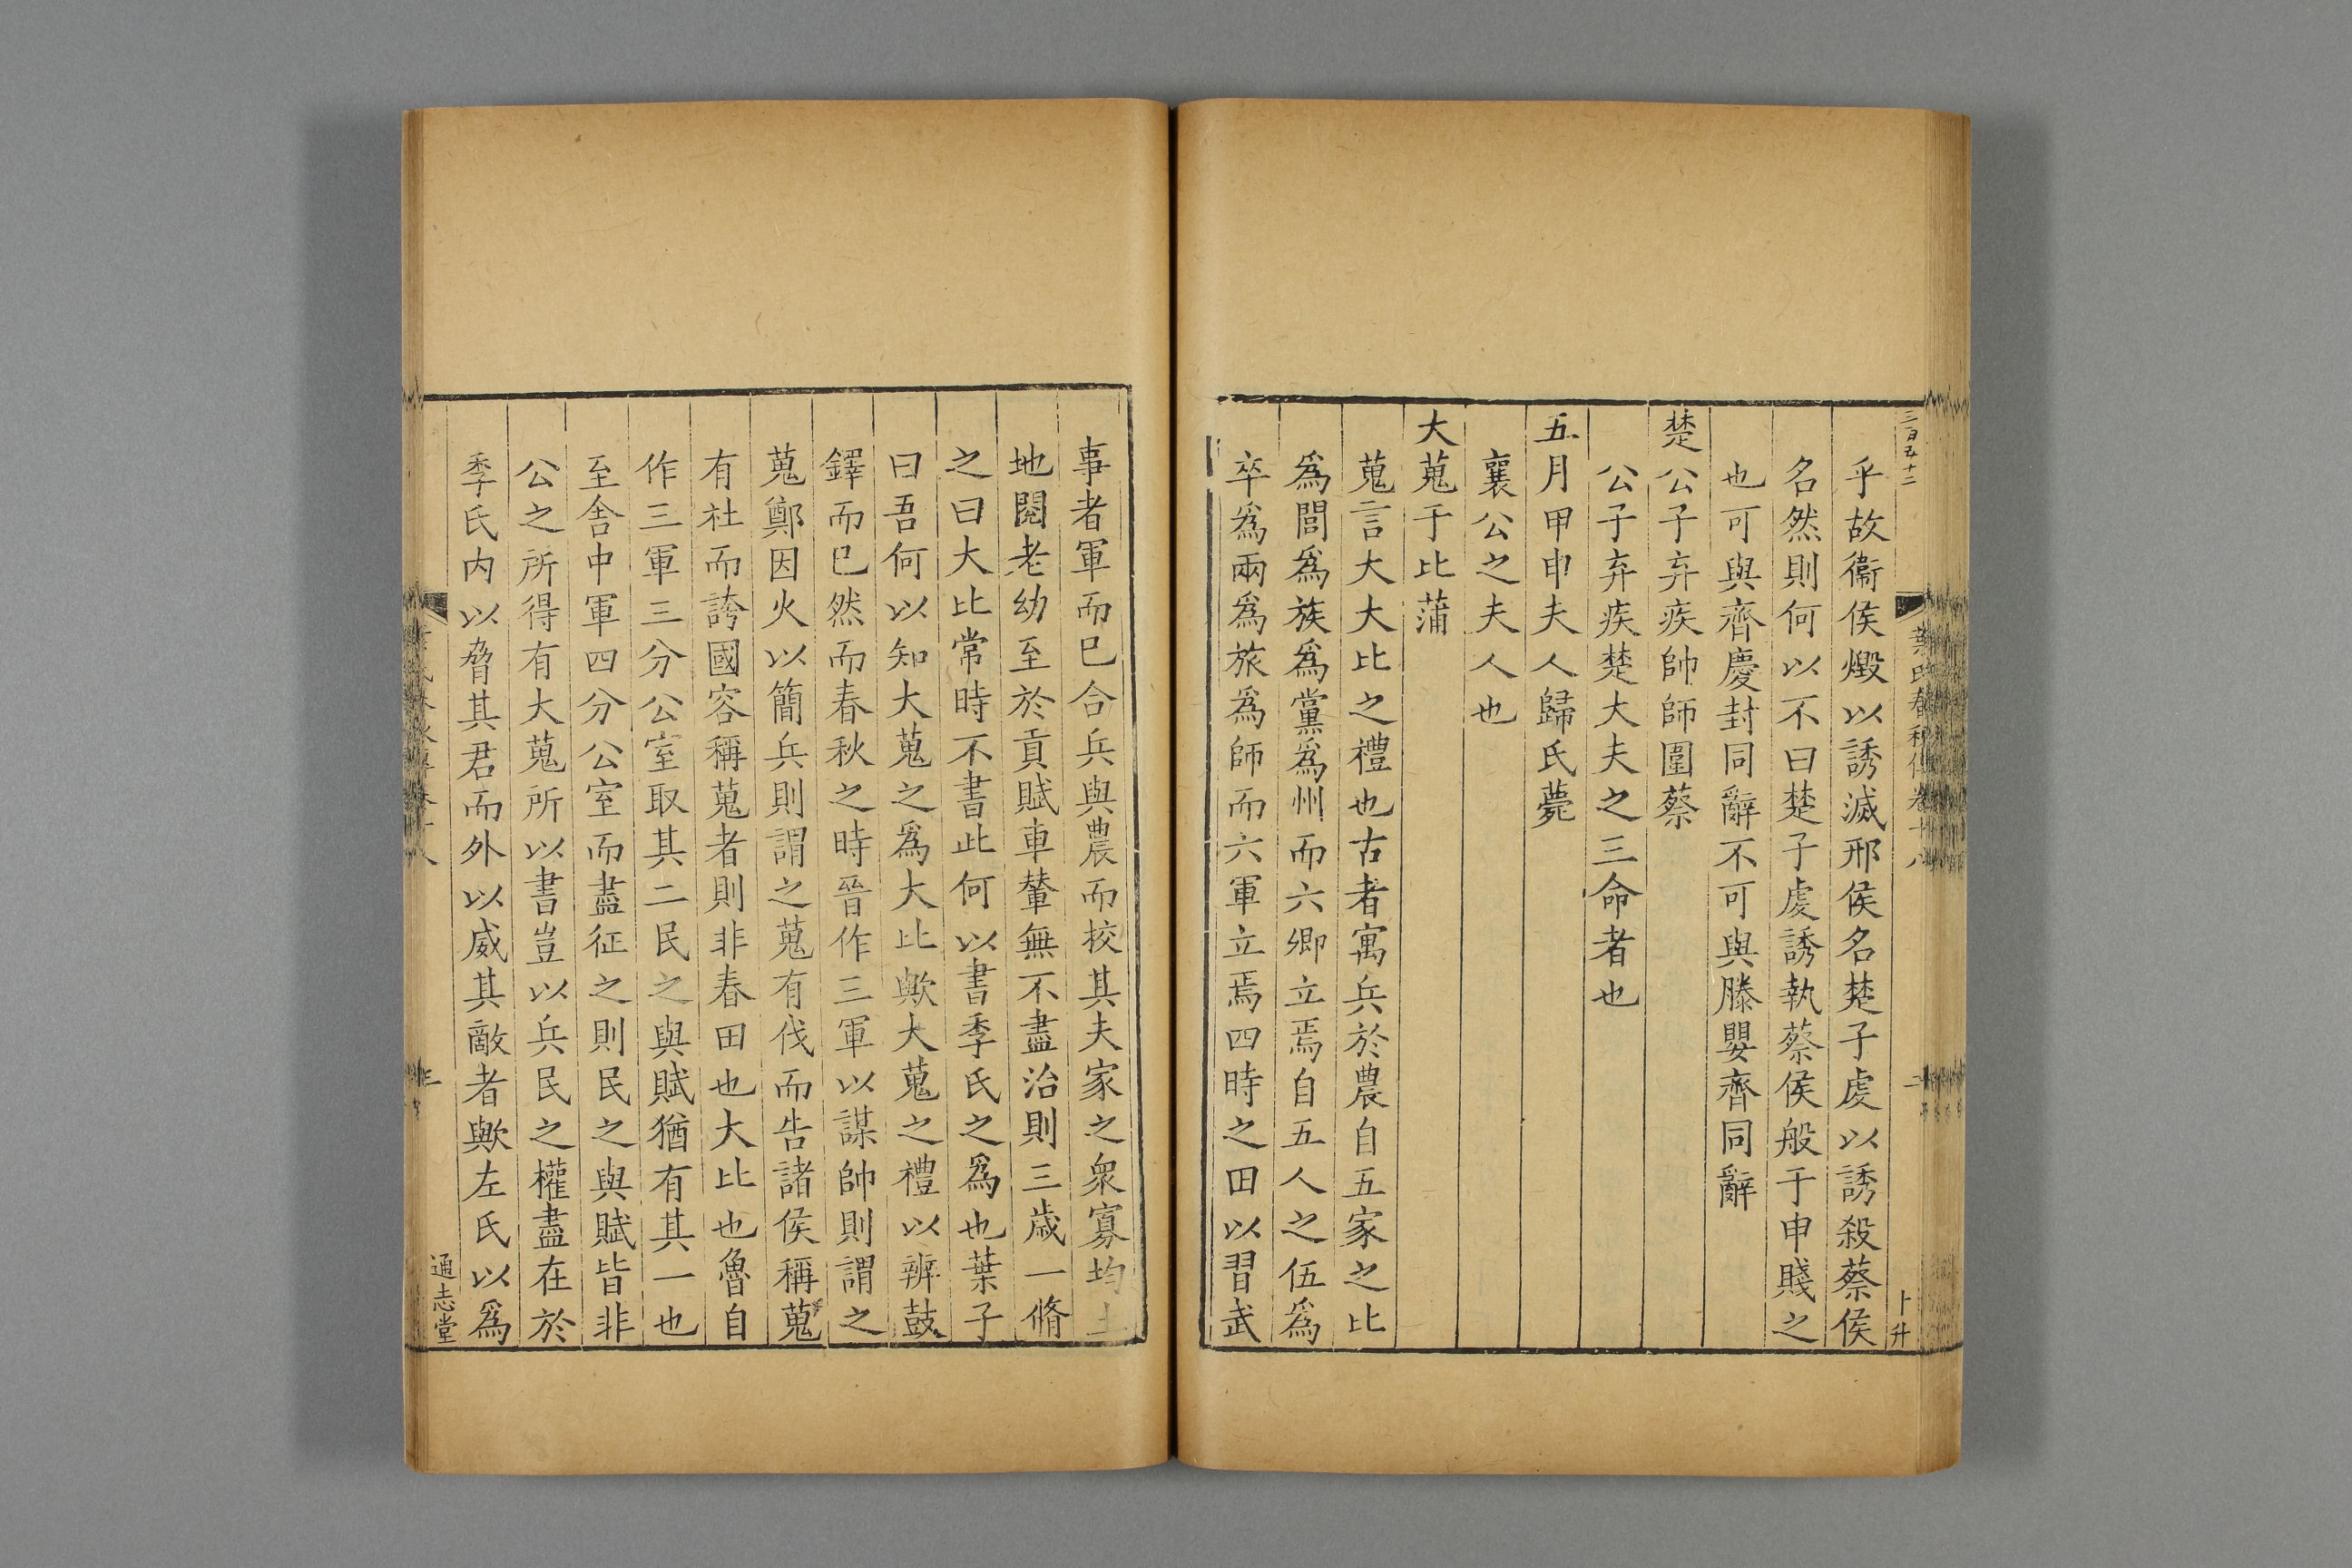 三百五十二
葉氏春秋傳卷十八
二
卜升
乎故衞侯燬以誘滅邢侯名楚子虔以誘殺蔡侯
名然則何以不曰楚子虔誘執蔡侯般于申賤之
也可與齊慶封同辭不可與滕嬰齊同辭
楚公子弃疾帥師圍蔡
公子弃疾楚大夫之三命者也
五月甲申夫人歸氏薨
襄公之夫人也
大蒐于比蒲
蒐言大大比之禮也古者寓兵於農自五家之比
爲閭爲族爲黨爲州而六卿立焉自五人之伍爲
卒爲兩爲旅爲師而六軍立焉四時之田以習武
事者軍而已合兵與農而挍其夫家之衆寡均土
地閱老幼至於貢賦車輦無不盡治則三歳一脩
之曰大比常時不書此何以書季氏之爲也葉子
曰吾何以知大蒐之爲大比歟大蒐之禮以辨鼓
鐸而已然而春秋之時晉作三軍以謀帥則謂之
蒐鄭因火以簡兵則謂之蒐有伐而告諸侯稱蒐
有社而誇國容稱蒐者則非春田也大比也魯自
作三軍三分公室取其二民之與賦猶有其一也
至舍中軍四分公室而盡征之則民之與賦皆非
公之所得有大蒐所以書豈以兵民之權盡在於
季氏内以脅其君而外以威其敵者歟左氏以爲
通志堂